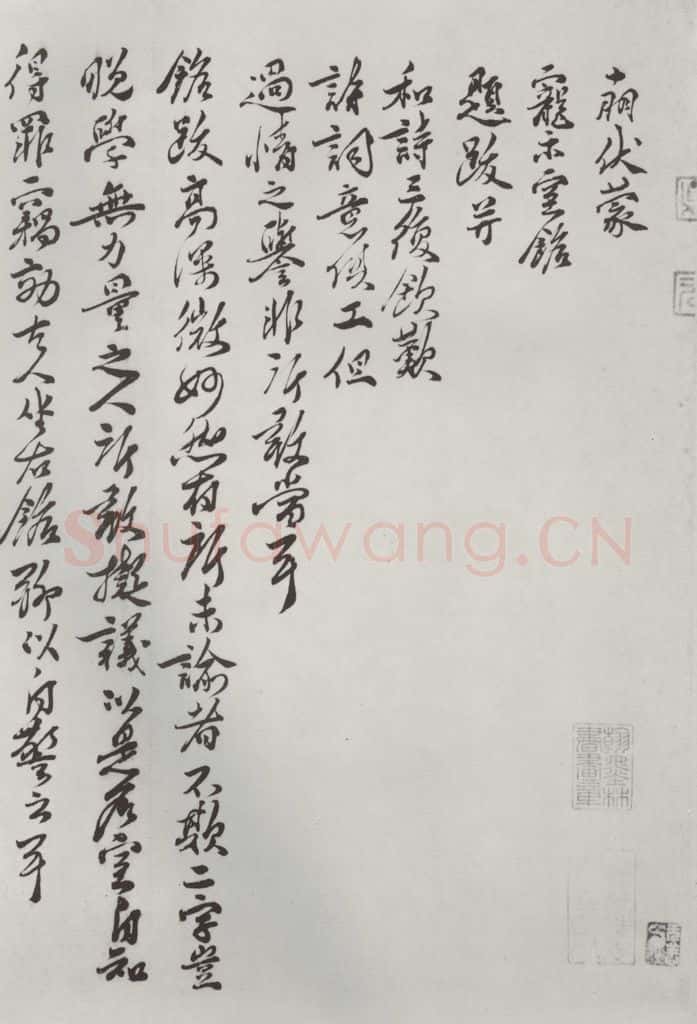 伏蒙
寵示室銘
題跋并
和詩三復欽歎
詩詞意俱工但
過情之譽非所敢當耳
銘跋高深微妙然有所未諭者不欺二字豈
晚學無力量之人所敢擬議以是名室自知
得罪竊効古人坐右銘聊以自警云耳
翰墨林
書畫章
Shufawang.CN